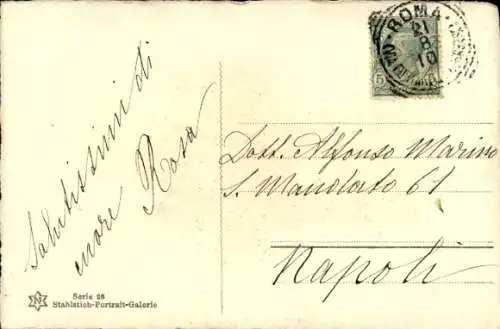 Salutissimi di
cuore Rosa
ROMA
21
8
10
Dott. Alfonso Marino
S. Mandato 61
Napoli
Serie 28
Stahlstich-Portrait-Galerie